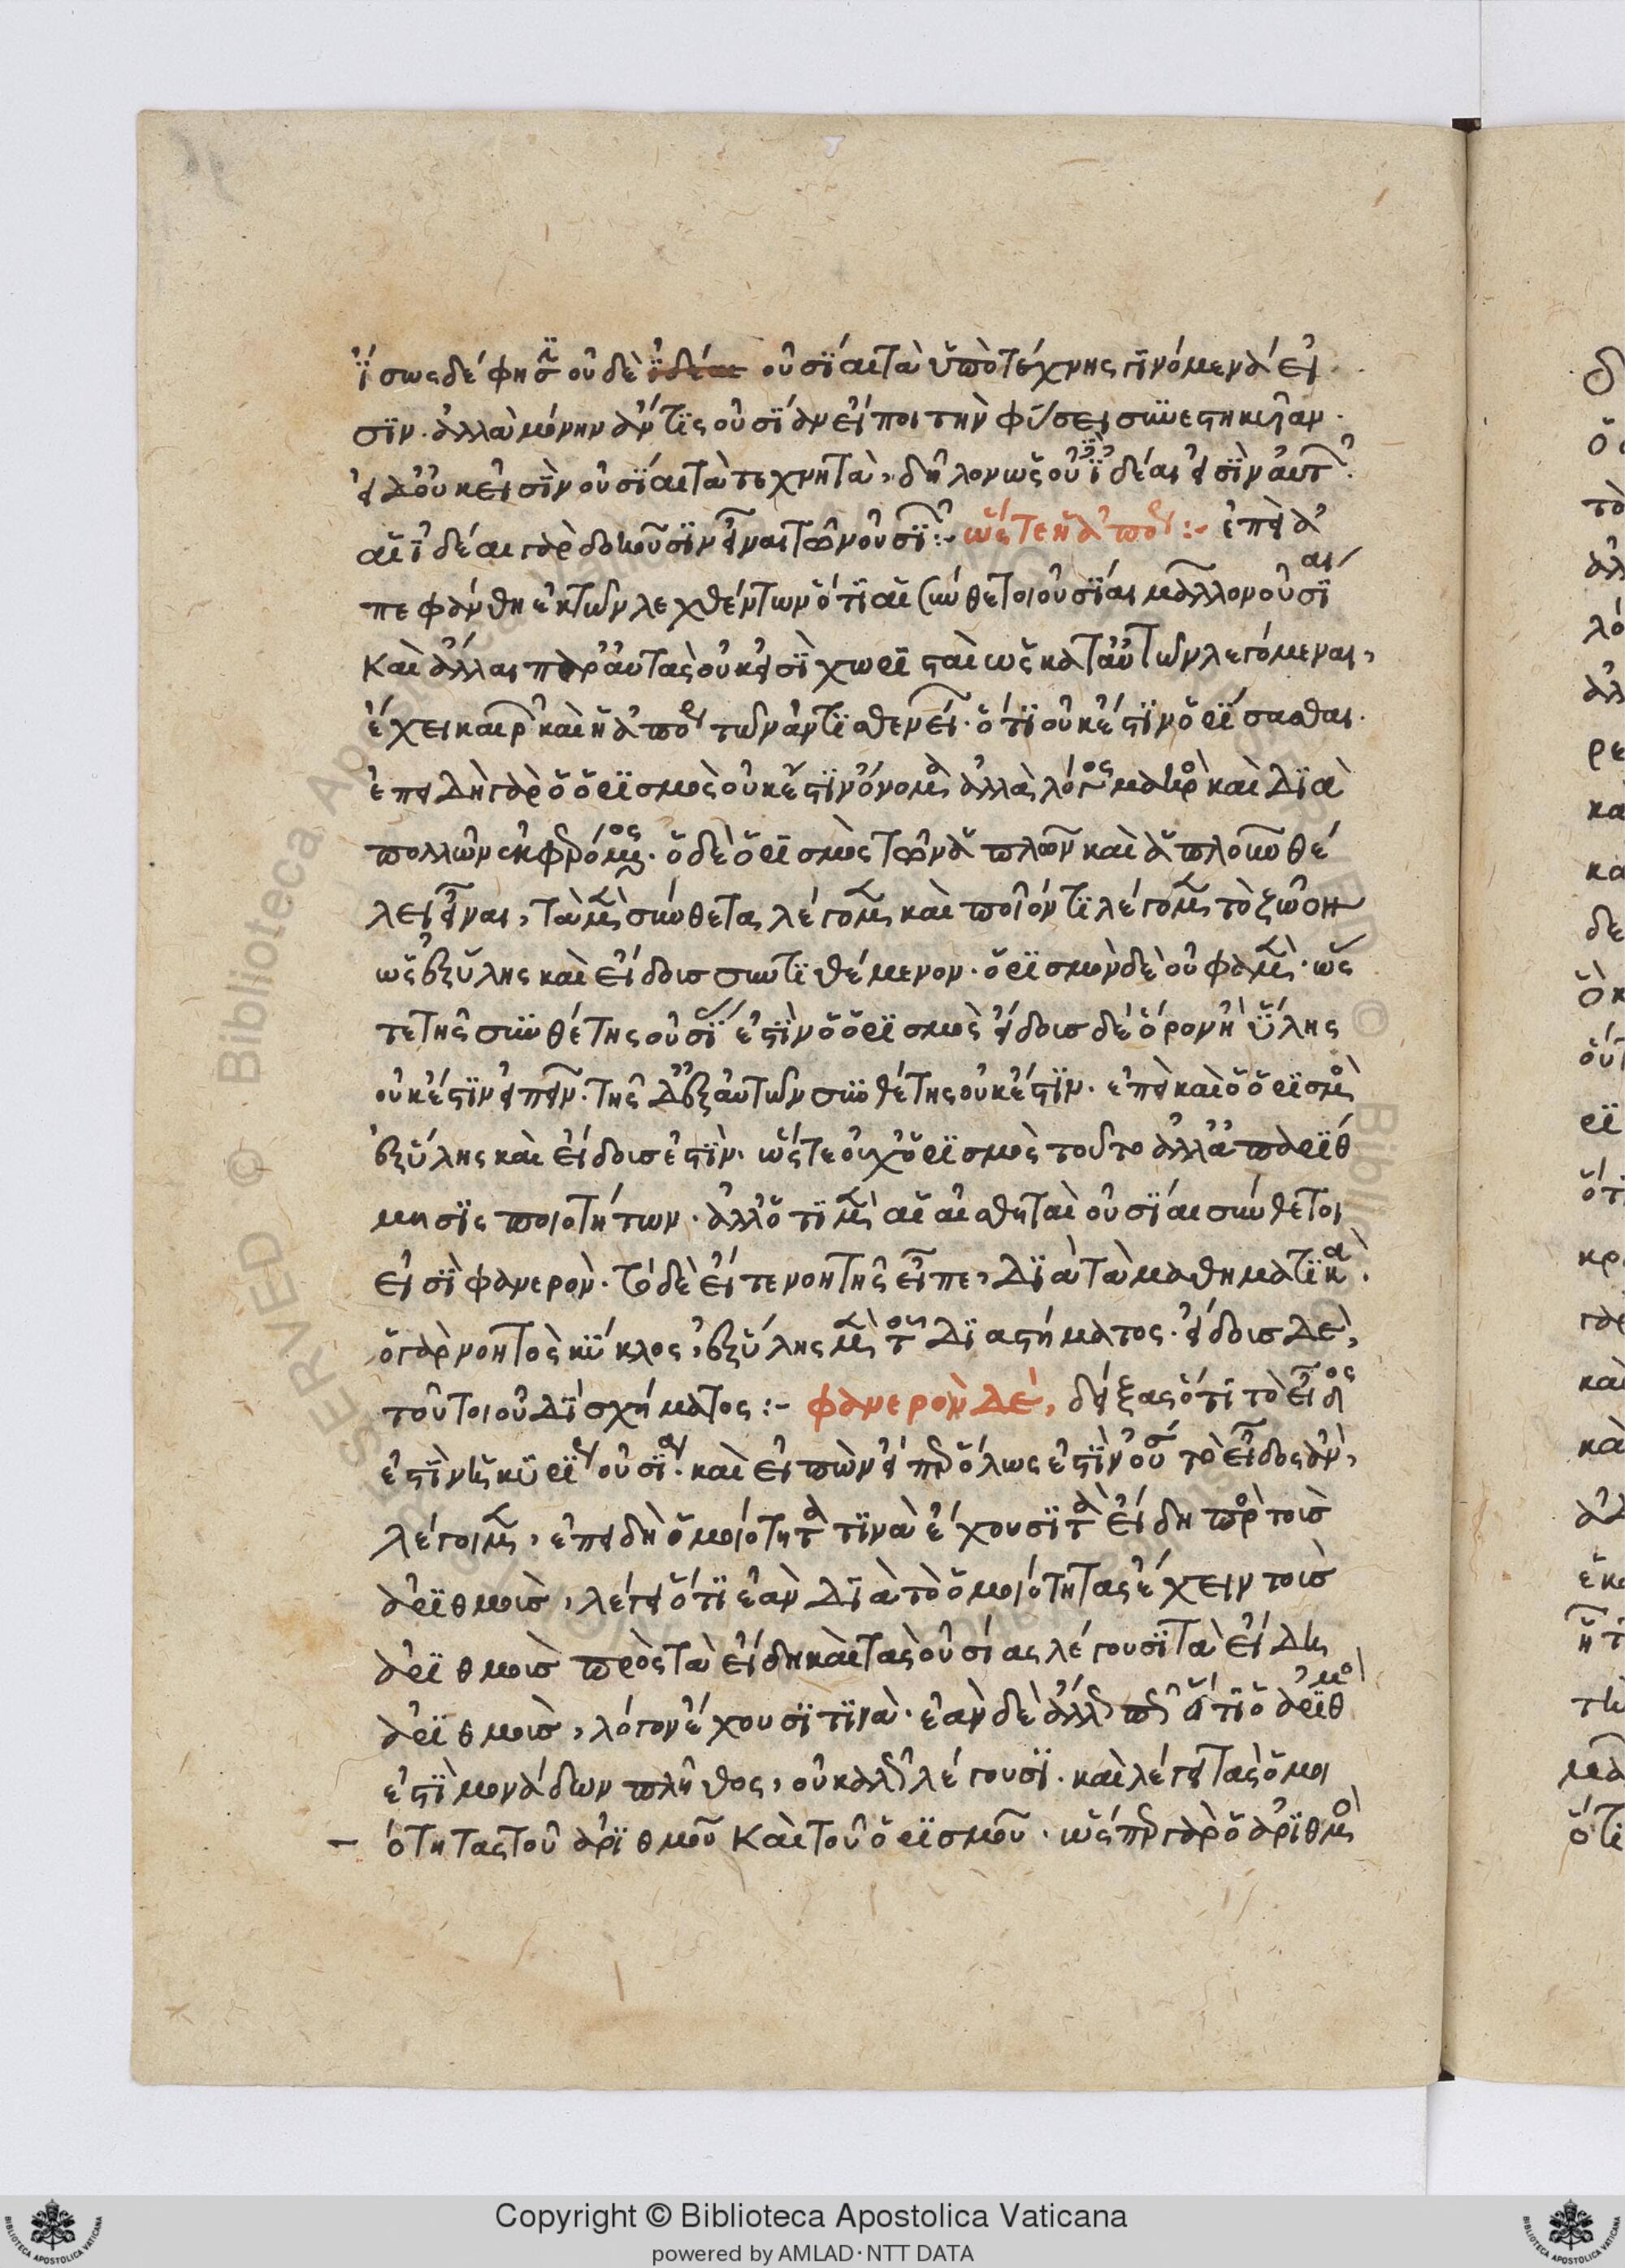 ἴσως δέ φησϊ οὐδὲ οὐσίαι τὰ ὑπὸ τέχνης γινόμενα εἰ
σϊν. ἀλλὰ μόνην ἄν τις οὐσίαν εἴποι τὴν φύσει συνεστηκυῖαν.
εἰ δ' οὐκ εἰσὶν οὐσίαι τὰ τεχνητὰ, δῆλον ὡς οὐδ' ἰδέαι εἰσὶν αὐτῶν.
αἱ ἰδέαι γὰρ δοκοῦσιν εἶναι τῶν οὐσιῶν:- ὥστε ἡ ἀπορία:- ἐπεὶ δ'
πεφάνθη ἐκ τῶν λεχθέντων ὅτι αἱ σύνθετοι οὐσίαι μᾶλλον οὐσίαι
καὶ ἄλλαι παρ' αὐτὰς οὐκ εἰσὶ χωρισταὶ ὡς κατ' αὐτῶν λεγόμεναι,
ἔχει καιρὸν καὶ ἡ ἀπορία τῶν ἀντισθενείων. ὅτι οὐκ ἔστιν ὁρίσασθαι.
ἐπειδὴ γὰρ ὁ ὁρισμὸς οὐκ ἔστιν ὄνομα ἀλλὰ λόγος μακρὸς καὶ διὰ
πολλῶν ἐκφερόμενος. ὁ δὲ ὁρισμὸς τῶν ἁπλῶν καὶ ἁπλοῦν θέ
λει εἶναι, τὰ μὲν σύνθετα λέγομεν καὶ ποῖόν τι λέγομεν τὸ ζῶον
ὡς ἐξ ὕλης καὶ εἴδους συντιθέμενον. ὁρισμὸν δὲ οὔ φαμεν. ὥς
τε τῆς συνθέτης οὐσίας ἐστὶν ὁ ὁρισμὸς εἴδους δὲ ὅρον ἢ ὕλης
οὐκ ἔστιν εἰπεῖν. τῆς δ' ἐξ αὐτῶν συνθέτης οὐκ ἔστιν. ἐπεὶ καὶ ὁ ὁρισμὸς
ἐξ ὕλης καὶ εἴδους ἐστὶν. ὥστε οὐχ ὁρισμὸς τοῦτο ἀλλ' ἀπαρίθ
μησις ποιοτήτων. ἀλλ' ὅτι μὲν αἱ αἰσθηταὶ οὐσίαι σύνθετοι
εἰσὶ φανερὸν. τὸ δὲ εἴτε νοητῆς εἶπε, διὰ τὰ μαθηματικὰ.
ὁ γὰρ νοητὸς κύκλος, ἐξ ὕλης μὲν τοῦ διαστήματος. εἴδους δὲ,
τοῦ τοιουδὶ σχήματος:- φανερὸν δὲ, δείξας ὅτι τὸ εἶδος
ἐστὶν ἡ κυρία οὐσία. καὶ εἰπὼν εἴπερ ὅλως ἐστὶν οὐσία τὸ εἶδος ἂν,
λέγοιμεν, ἐπειδὴ ὁμοιότητα τινὰ ἔχουσι τὰ εἴδη πρὸς τοὺς
ἀριθμοὺς, λέγει ὅτι ἐὰν διὰ τὸ ὁμοιότητας ἔχειν τοὺς
ἀριθμοὺς πρὸς τὰ εἴδη καὶ τὰς οὐσίας λέγουσι τὰ εἴδη
ἀριθμοὺς, λόγον ἔχουσι τινὰ. ἐὰν δὲ ὅτι ὁ ἀριθμὸς
ἐστὶ μονάδων πλῆθος, οὐ καλῶς λέγουσι. καὶ λέγει τὰς ὁμοι
ότητας τοῦ ἀριθμοῦ καὶ τοῦ ὁρισμοῦ. ὥσπερ γὰρ ὁ ἀριθμὸς